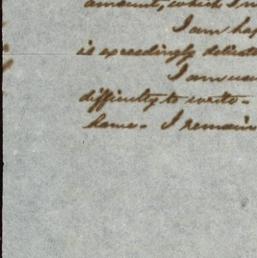 amount, which I
I am
is exceedingly delicate
I am
difficulty to write -
home - I remain